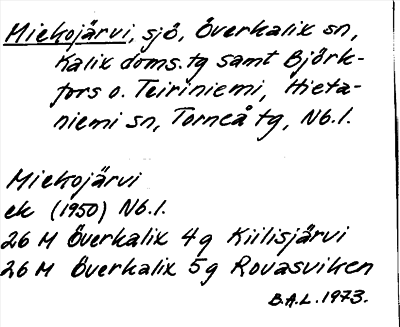 Miekojärvi, sjö, Överkalix sn,
Kalix doms.tg samt Björk-
fors o. Teiriniemi, Hieta-
niemi sn, Torneå tg, Nb.l.
Miekojärvi
ek (1950) Nb.l.
26 M Överkalix 4g Kiilisjärvi
26 M Överkalix 5g Rovasviken
B.A.L. 1973.